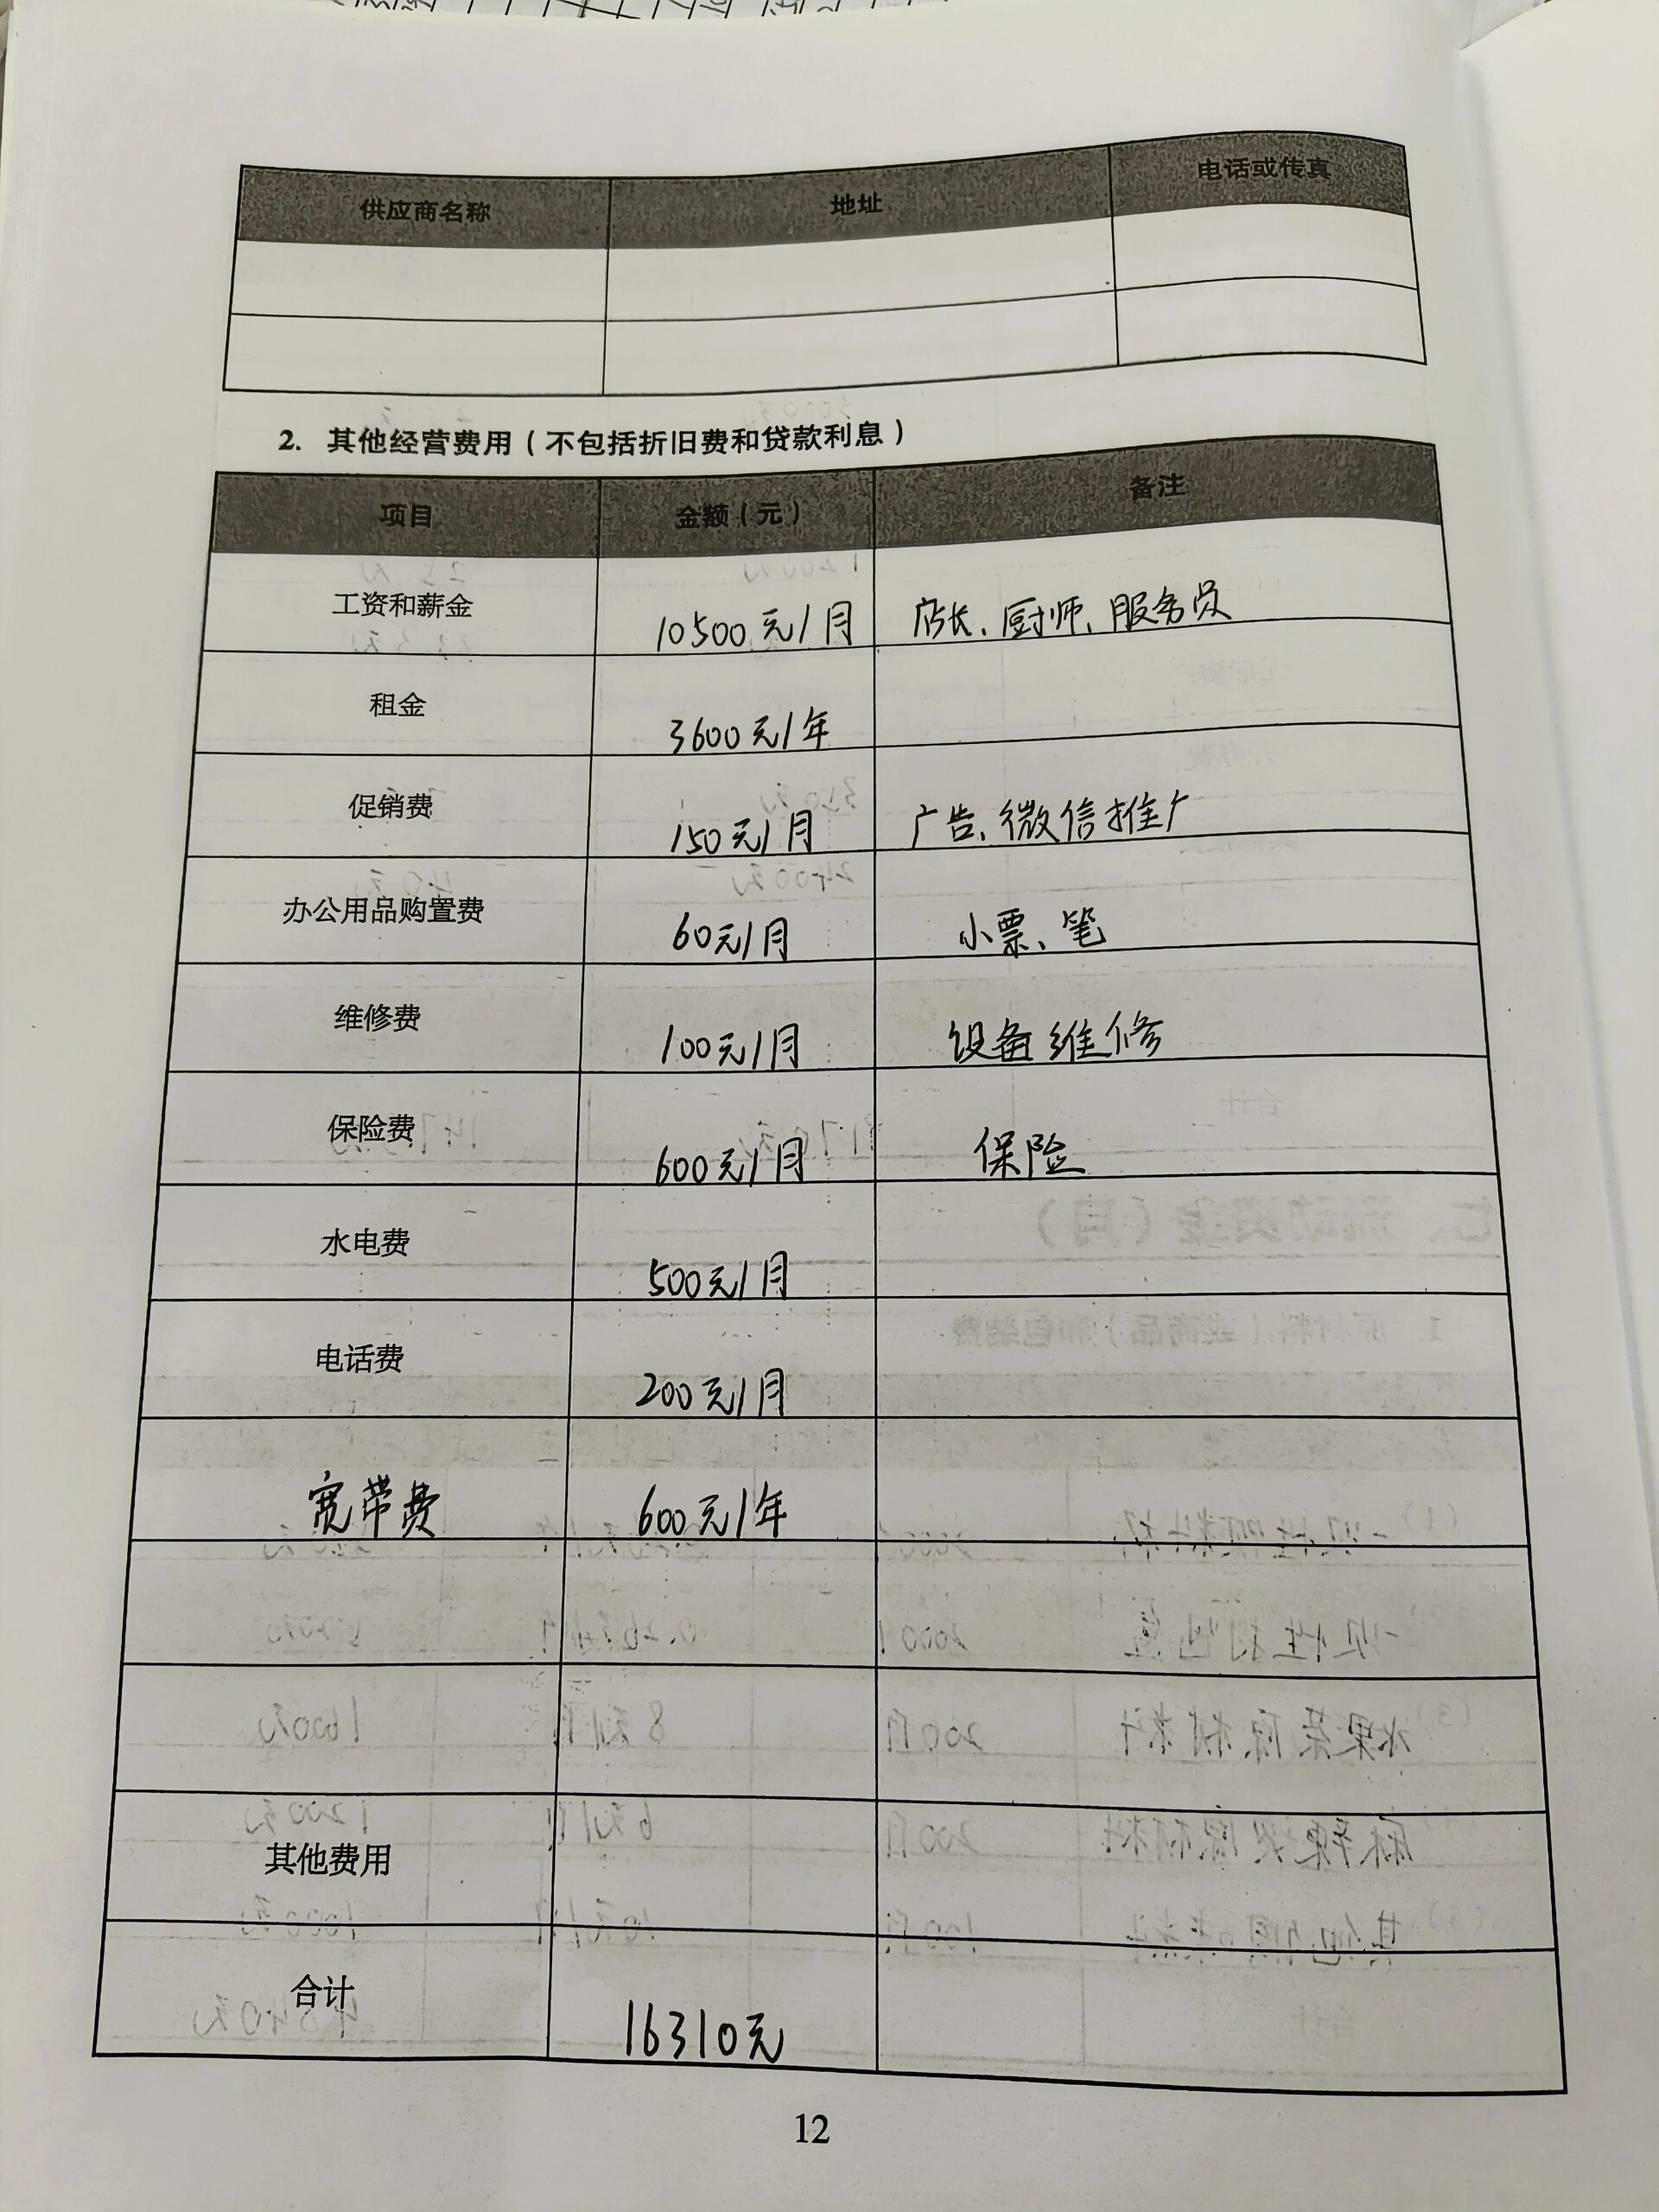 供应商名称 地址 电话或传真
2. 其他经营费用（不包括折旧费和贷款利息）
项目 金额（元） 备注
工资和薪金 10500元/月 店长、厨师、服务员
租金 3600元/年
促销费 150元/月 广告、微信推广
办公用品购置费 60元/月 小票、笔
维修费 100元/月 设备维修
保险费 600元/月 保险
水电费 500元/月
电话费 200元/月
宽带费 600元/年
其他费用
合计 16310元
12